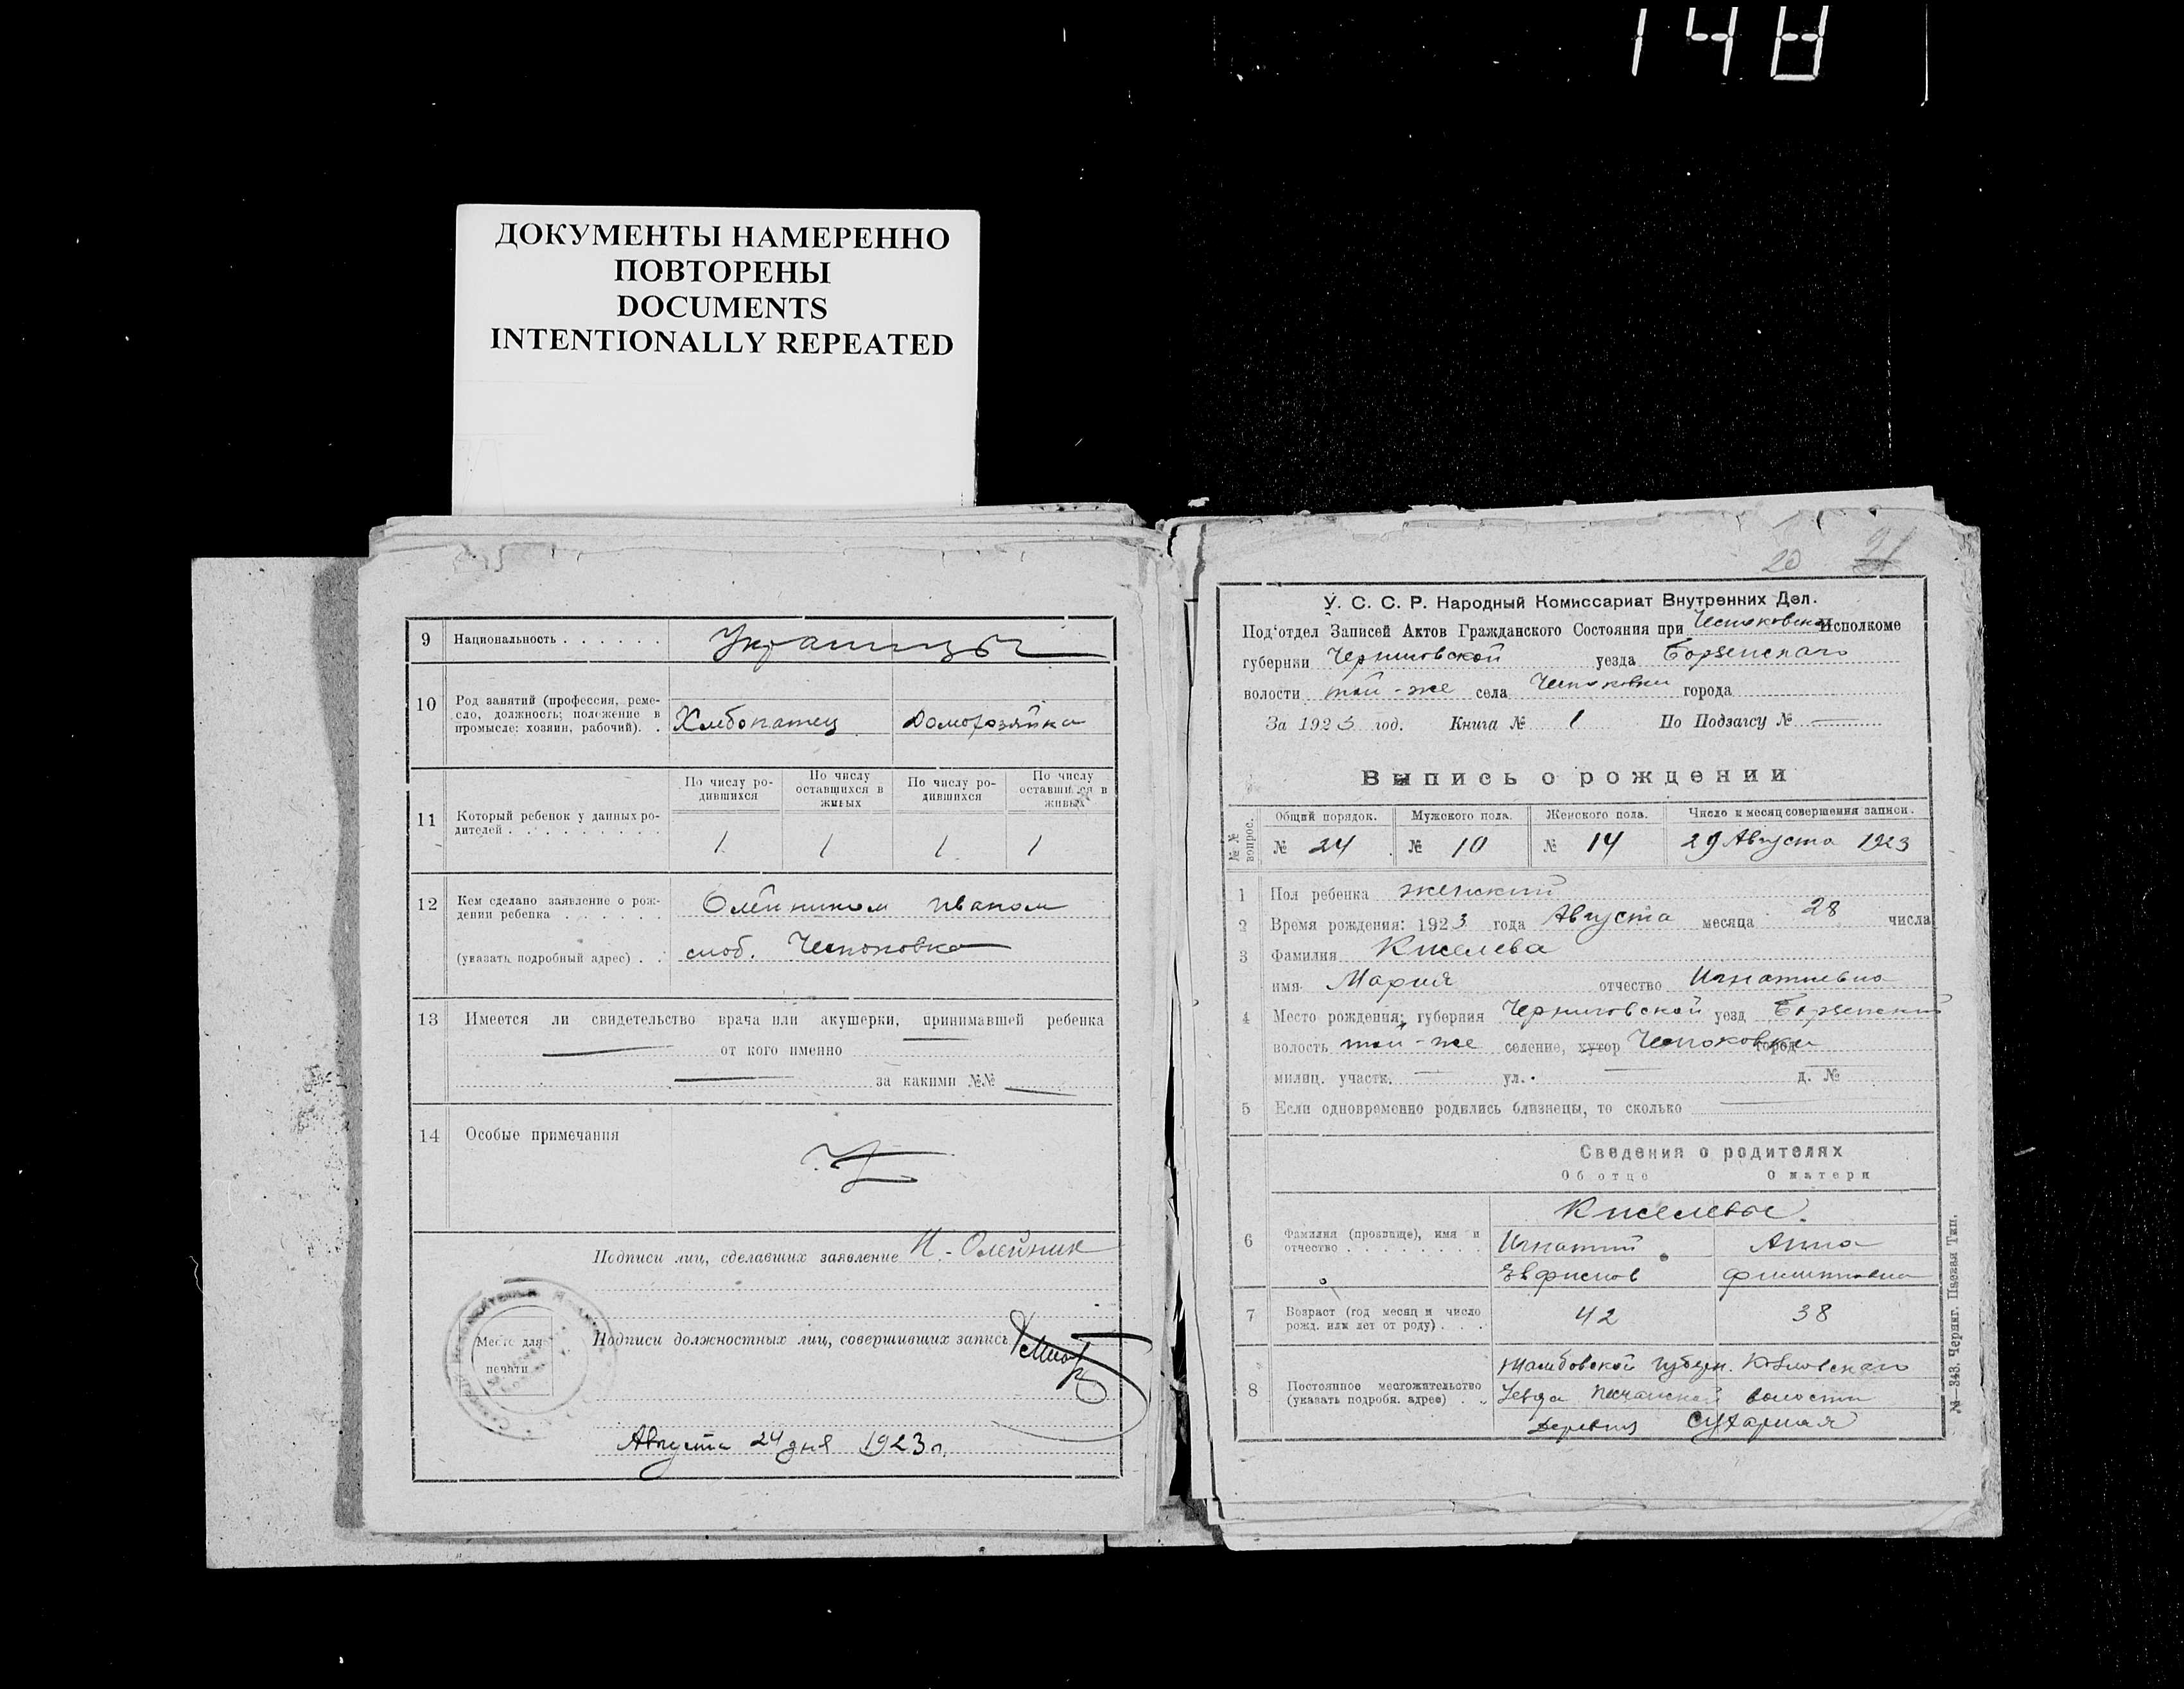 148
ДОКУМЕНТЫ НАМЕРЕННО
ПОВТОРЕНЫ
DOCUMENTS
INTENTIONALLY REPEATED
9 Национальность . . . . . . Украинцы
10 Род занятий (профессия, реме-
сло, должность; положение в
промысле: хозяин, рабочий). .
Хлебопашец Домохозяйка
11 Который ребенок у данных ро-
дителей . . . . . . . . .
По числу ро-
дившихся
По числу
оставшихся в
живых
По числу ро-
дившихся
По числу
оставшихся в
живых
1 1 1 1
12 Кем сделано заявление о рож-
дении ребенка . . . . . . Олейником Иваном
(указать подробный адрес) . . слоб.
13 Имеется ли свидетельство врача или акушерки, принимавшей ребенка
от кого именно
за какими №№
14 Особые примечания
Подписи лиц, сделавших заявление И. Олейник
Место для
печати
Подписи должностных лиц, совершивших запись
Августа 24 дня 1923 г.
20 21
У. С. С. Р. Народный Комиссариат Внутренних Дел.
Под‘отдел Записей Актов Гражданского Состояния при Исполкоме
губернии Черниговской уезда Борзенскаго
волости той-же села города
За 1923 год. Книга № 1 По Подзагсу № —
Выпись о рождении
№ № вопрос.
Общий порядок. Мужского пола. Женского пола. Число и месяц совершения записи.
№ 24 № 10 № 14 29 Августа 1923
1 Пол ребенка женский
2 Время рождения: 1923 года Августа месяца 28 числа
3 Фамилия Киселева
имя Мария отчество Игнатиевна
4 Место рождения: губерния Черниговской уезд Борзенский
волость той-же селение, хутор город
милиц. участк. — ул. — д. №
5 Если одновременно родились близнецы, то сколько —
Сведения о родителях
Об отце О матери
6 Фамилия (прозвище), имя и
отчество . . . . . . . .
Киселевы.
Игнатий Анна
Филипповна
7 Возраст (год месяц и число
рожд. или лет от роду) . . . 42 38
8 Постоянное местожительство
(указать подробн. адрес) . .
Тамбовской губерн.
Уезда Песчанской волости
Деревня
№—343. Черниг. Тип.